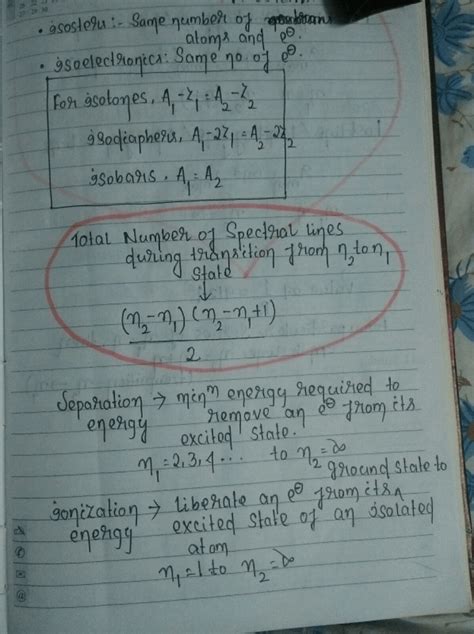 • isosters :- Same number of
atoms and e⊖.
• isoelectronics: Same no of e⊖.
For isotones, A₁-Z₁=A₂-Z₂
isodiaphers, A₁-2Z₁=A₂-2Z₂
isobars. A₁=A₂
Total Number of Spectral lines
during transition from n₂ to n₁
State
↓
(n₂-n₁) (n₂-n₁+1)
2
Separation → minᵐ energy required to
energy remove an e⊖ from its
excited state.
n₁=2,3,4... to n₂=∞
ground state to
ionization → liberate an e⊖ from its ^
energy excited state of an isolated
atom
n₁=1 to n₂=∞